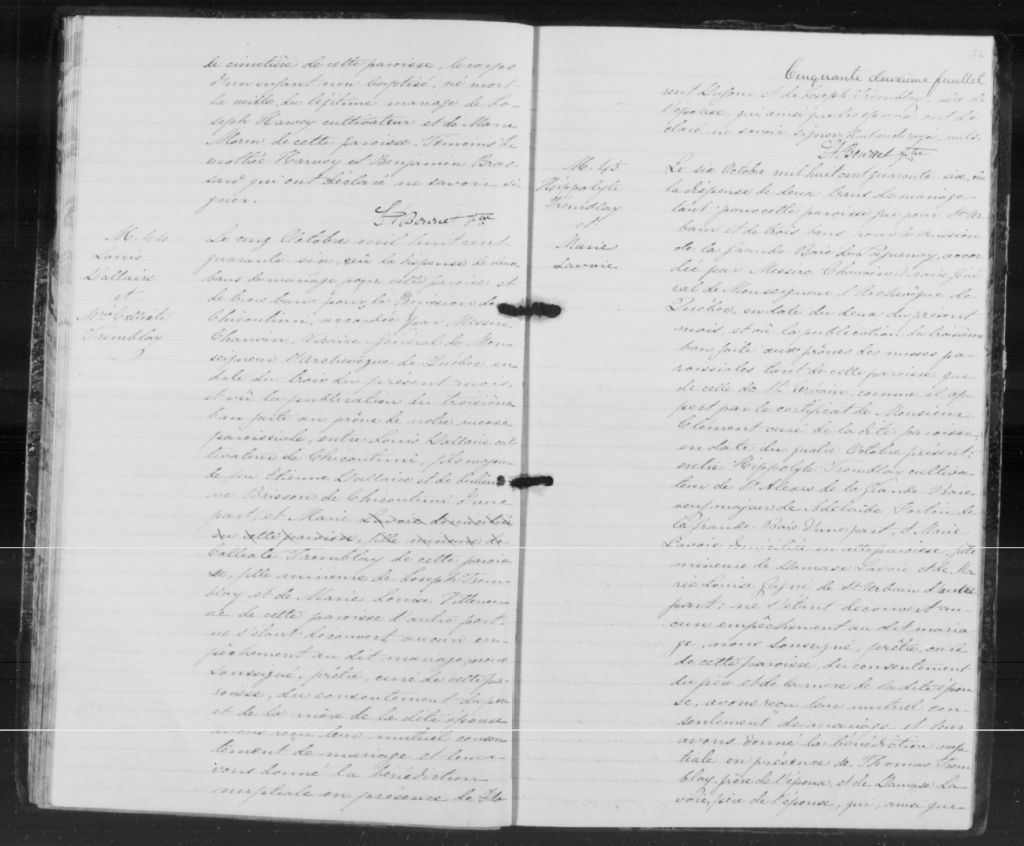 le cimetière de cette paroisse, le corps
d'un enfant non baptisé, né mort
la veille, du légitime mariage de Jo-
seph Harvey cultivateur et de Marie
Morin de cette paroisse. Témoins Ti-
mothée Harvey et Benjamin Bras-
sard qui ont déclaré ne savoir si-
gner.
M. 44
Louis
Dallaire
et
Tremblay
Le cinq Octobre mil huit cent
quarante six, vû la dispense de deux
bans de mariage pour cette paroisse et
de trois bans pour la Mission de
Chicoutimi, accordée par Messire
Vicaire général de Mon-
seigneur l'Archevêque de Québec en
date du trois du present mois;
et vû la publication du troisième
ban faite au prône de notre messe
paroissiale, entre Louis Dallaire cul
tivateur de Chicoutimi, fils majeur
de feu Etienne Dallaire et de
Brisson de Chicoutimi d'une
part; et Marie Lavoie domiciliée
en cette paroisse, fille mineure de
Tremblay de cette parois-
se, fille mineure de Joseph Trem-
blay et de Marie Louise Villeneu-
ve de cette paroisse d'autre part:
ne s'étant decouvert aucun em-
pêchement au dit mariage, nous
soussigné, prêtre, curé de cette pa-
roisse, du consentement du père
et de la mère de la dite épouse
avons reçu leur mutuel consen-
tement de mariage et leur a-
vons donné la bénédiction
nuptiale en présence de Flo
52
Cinquante deuxième feuillet
rent Dufour et de Joseph Tremblay, père de
l'épouse, qui, ainsi que les époux ont dé
claré ne savoir signer. Huit mots rayés nuls.
M. 45
Hippolyte
Tremblay
et
Marie
Lavoie
Le six Octobre mil huit cent quarante six, vû
la dispense de deux bans de mariage
tant pour cette paroisse que pour St Ur-
bain et de trois bans pour la mission
de la Grande Baie du Saguenay, accor-
dée par Messire Vicaire géné
ral de Monseigneur l'Archevêque de
Québec, en date du deux du present
mois, et vû la publication du troisième
ban faite aux prônes des messes pa-
roissiales tant de cette paroisse que
de celle de St Urbain comme il ap-
pert par le certificat de Monsieur
Clément curé de la dite paroisse,
en date du quatre Octobre present;
entre Hippolyte Tremblay cultiva-
teur de St Alexis de la Grande Baie
veuf majeur de Adélaïde Fortin de
la Grande Baie d'une part, et Marie
Lavoie domiciliée en cette paroisse, fille
mineure de Damase Lavoie et de Ma-
rie Louise Gagné de St Urbain d'autre
part: ne s'étant decouvert au-
cun empêchement au dit maria-
ge, nous soussigné, prêtre, curé
de cette paroisse, du consentement
du père et de la mère de la dite épou-
se, avons reçu leur mutuel con-
sentement de mariage et leur
avons donné la bénédiction nup-
tiale en présence de Thomas Trem-
blay, frère de l'époux, et de Damase La-
voie, père de l'épouse, qui, ainsi que